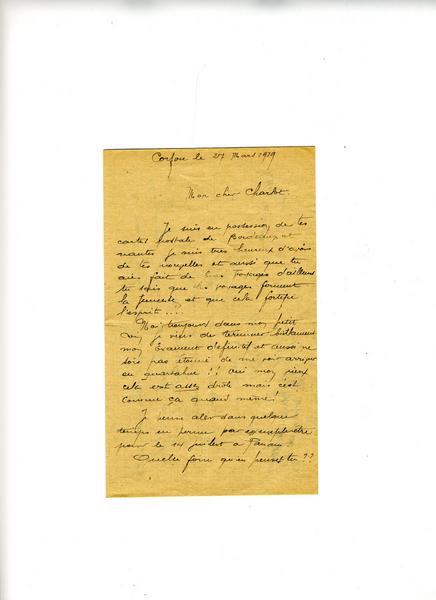 Corfou le 27 Mars 1919
Mon cher Charlot.
Je suis en possession de tes
cartes postale de Bordeaux et
nantes je suis très heureux d'avoir
de tes nouvelles et aussi que tu
aies fait de bons voyages d'ailleurs
tu sais que les voyages forment
la jeunesse et que cela fortifie
l'esprit ....
Moi toujours dans mon petit
je viens de terminer
mon Examen définitif et aussi ne
sois pas étonné de me voir arriver
en !! oui mon vieux
cela est assez drôle mais c'est
comme ça quand même!
Je pense aler dans quelque
temps en perme par exemple être
pour le 14 juillet a Panam
Quelle foire qu'en penses tu ??